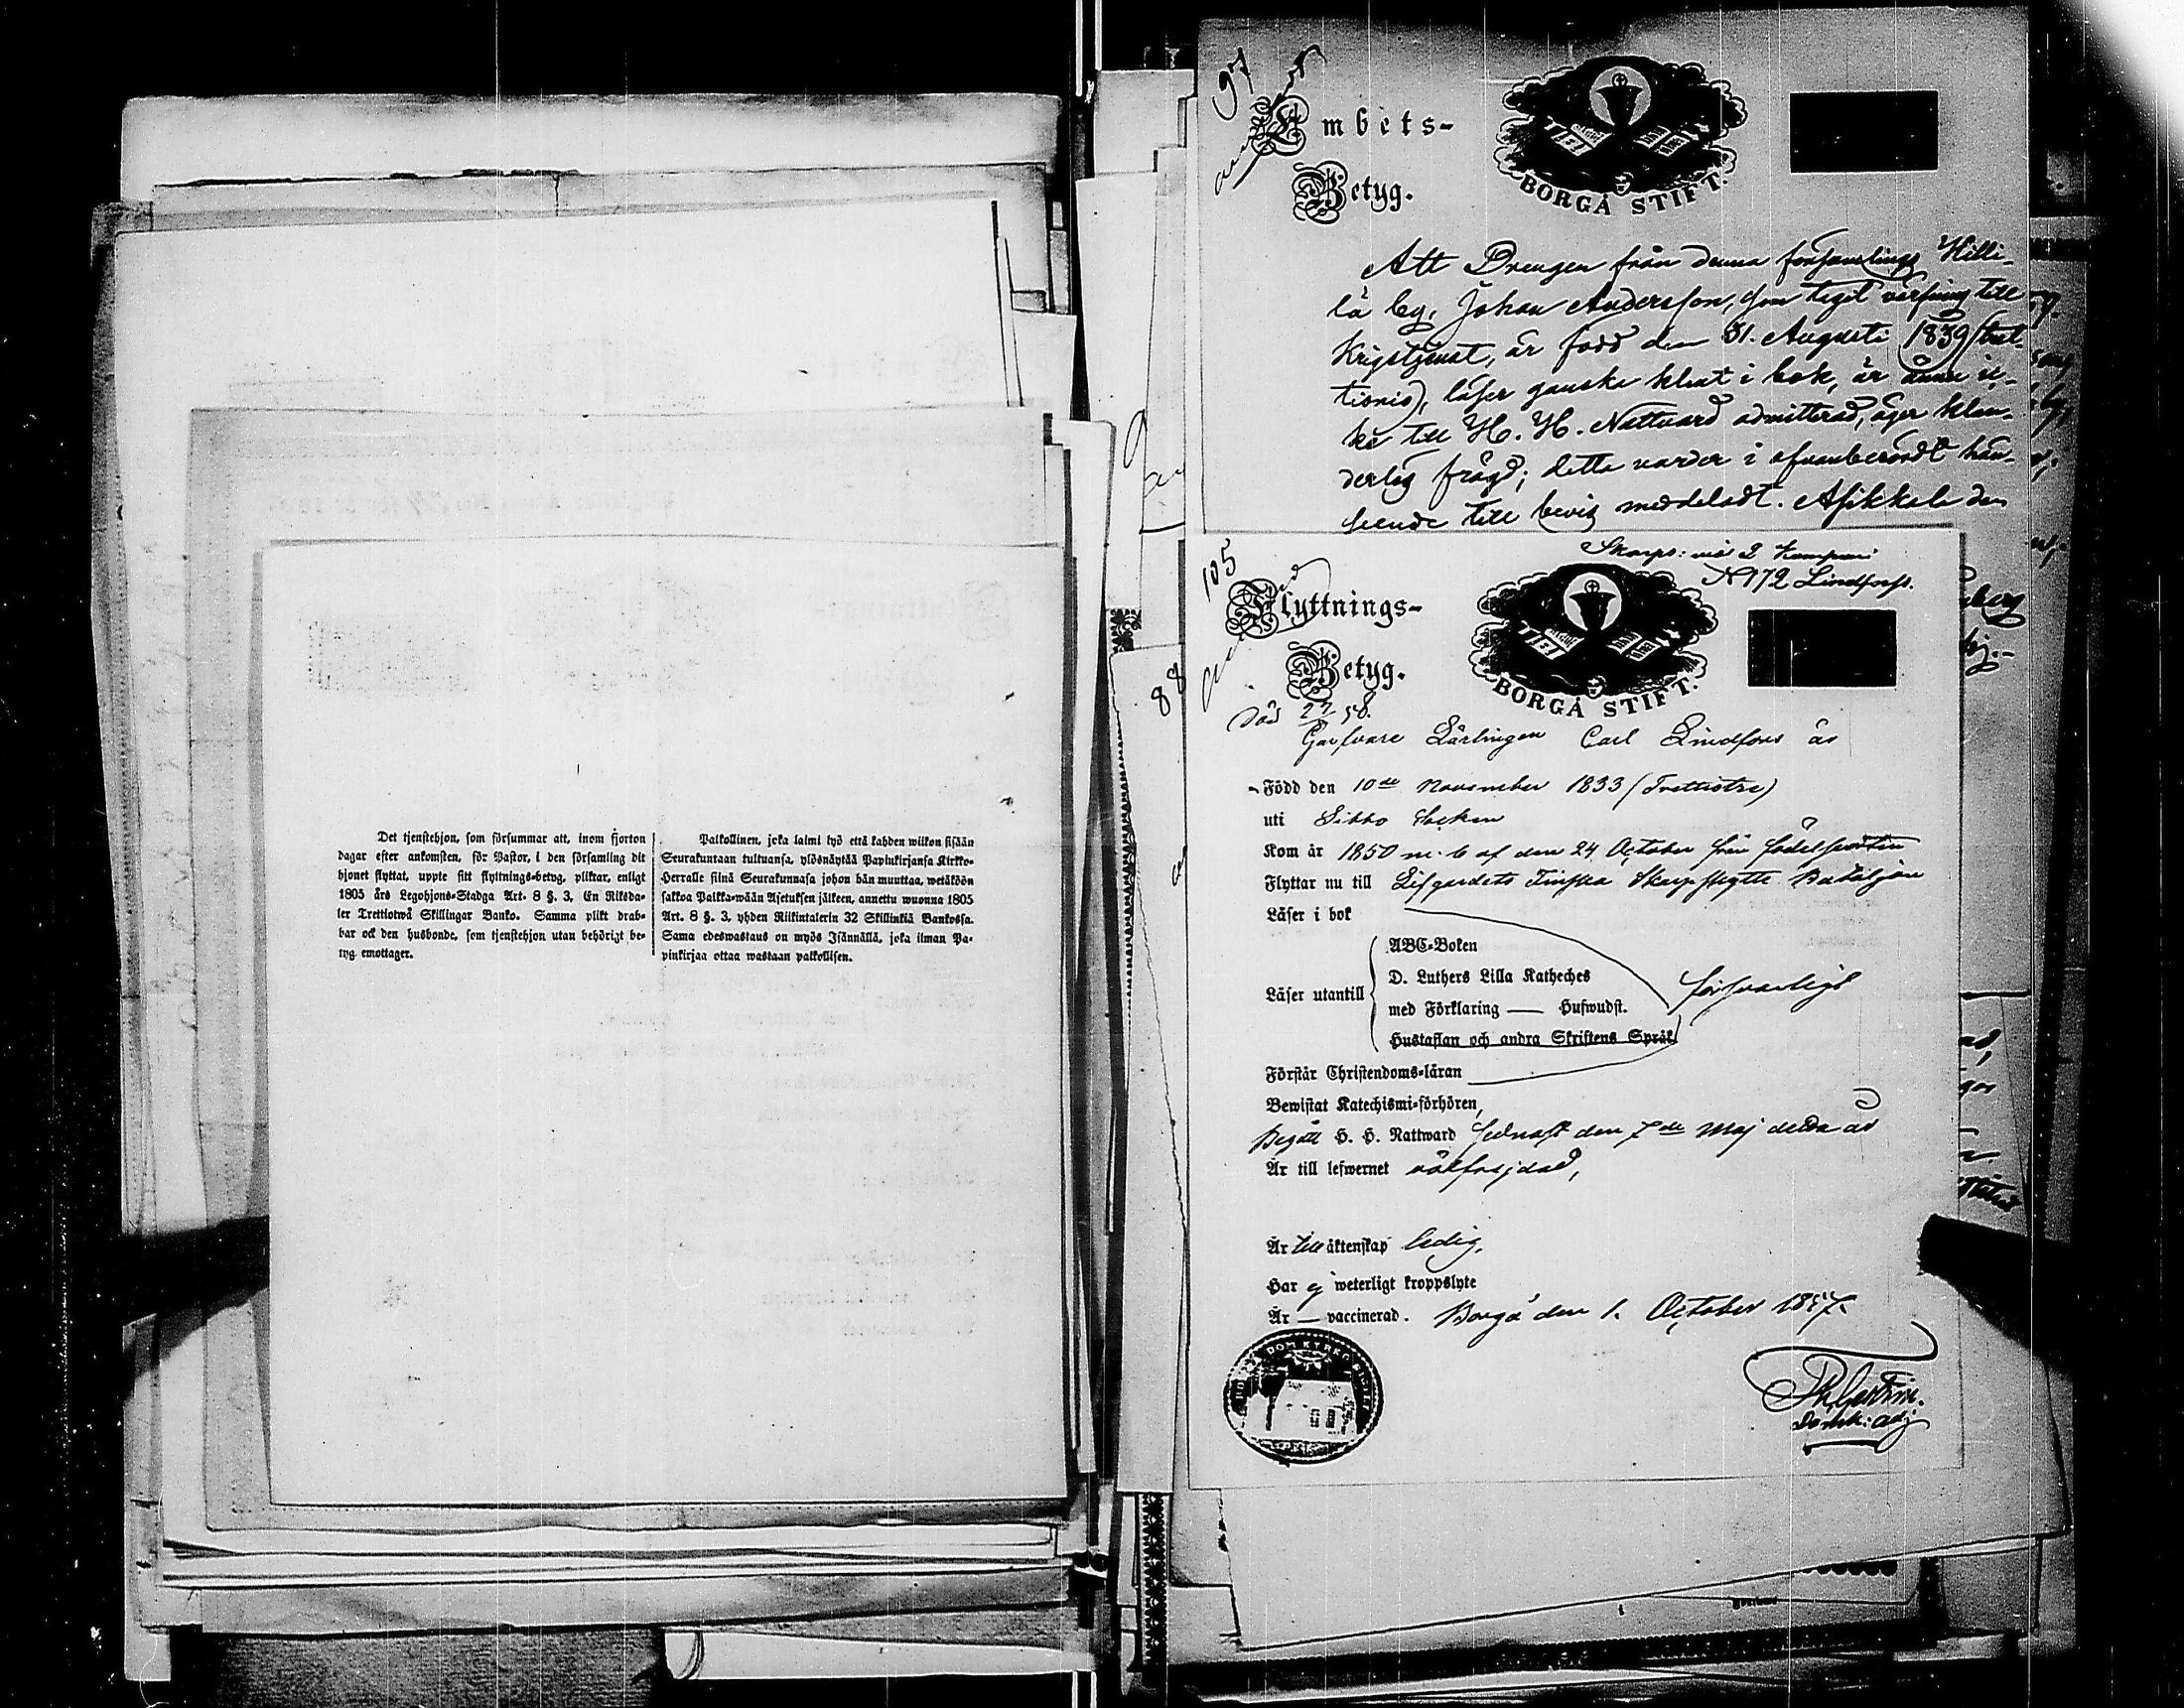 Det tjenstehjon, som försummar att, inom fjorton
dagar efter ankomsten, för Pastor, i den församling dit
hjonet flyttat, uppte sitt flyttnings-betyg, pliktar, enligt
1805 års Legohjons-Stadga Art. 8 §. 3, En Riksda-
ler Trettiotwå Skillingar Banko. Samma plikt drab-
bar ock den husbonde, som tjenstehjon utan behörigt be-
tyg emottager.
Palkollinen, joka laimi lyö että kahden wiikon sisään
Seurakuntaan tultuansa, ylösnäytää Papinkirjansa Kirkko-
Herralle siinä Seurakunnasa johon hän muuttaa, wetäköön
sakkoa Palkka-wään Asetuksen jälkeen, annettu wuonna 1805
Art. 8 §. 3, yhden Riikintalerin 32 Skillinkiä Bankossa.
Sama edeswastaus on myös Isännällä, joka ilman Pa-
pinkirjaa ottaa wastaan palkollisen.
97
Embets-
Betyg.
BORGÅ STIFT.
Att Drengen från denna församlings Hilli-
lä by, Johan Andersson, som tagit värfning till
Krigstjenst, är född den 31. Augusti 1839 (tret-
tionio), läser ganska klent i bok, är ännu ic-
ke till H. H. Nattvard admitterad, äger klan-
derlig frägd; detta varder i ofvanberördt hän-
seende till bevis meddeladt. Asikkala den
105
Skarps: vid 2 Kompani
N 172 Lindfors.
Flyttnings-
Betyg.
BORGÅ STIFT.
88
Död 27/ 58.
Garfvare Lärlingen Carl Lindfors är
Född den 10de November 1833 (Trettiotre)
uti Sibbo Socken
Kom år 1850 m. b. af den 24 October från födelseorten
Flyttar nu till Lifgardets Finska Skarpskytte Bataljon
Läser i bok
Läser utantill
ABC-Boken
D. Luthers Lilla Katheches
med Förklaring — Hufwudst.
Hustaflan och andra Skriftens Språk
försvarligt
Förstår Christendoms-läran
Bewistat Katechismi-förhören,
Begått H. H. Nattward sednast den 7de Maj detta år
Är till lefwernet välfrejdad,
Är till äktenskap ledig,
Har ej weterligt kroppslyte
Är — vaccinerad. Borgå den 1. October 1857.
Domk: adj